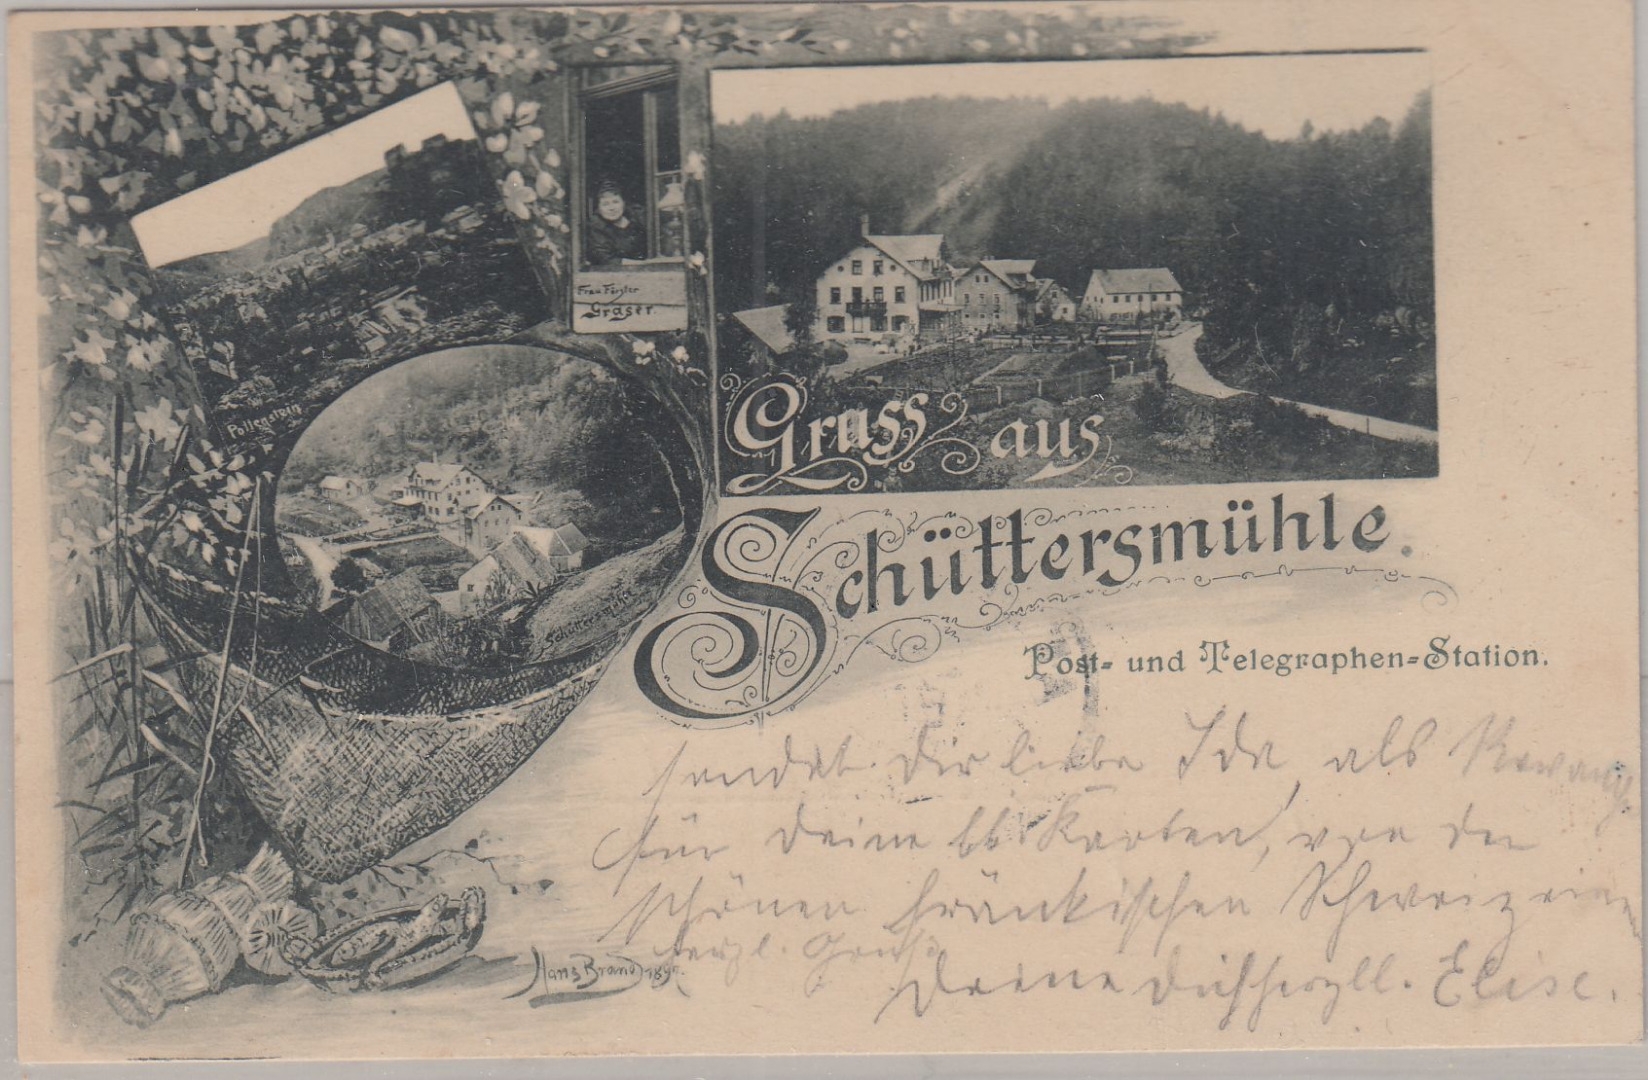 Frau Förster
Graser.
Pollenstein
Schüttersmühle
Gruss aus
Schüttersmühle.
Post- und Telegraphen-Station.
sendet Dir liebe Ida, als
für Deine Karten, von der
schönen fränkischen Schweiz einen
herzl. Gruss
Deine Dich herzll. Elise.
Hans Brand 189